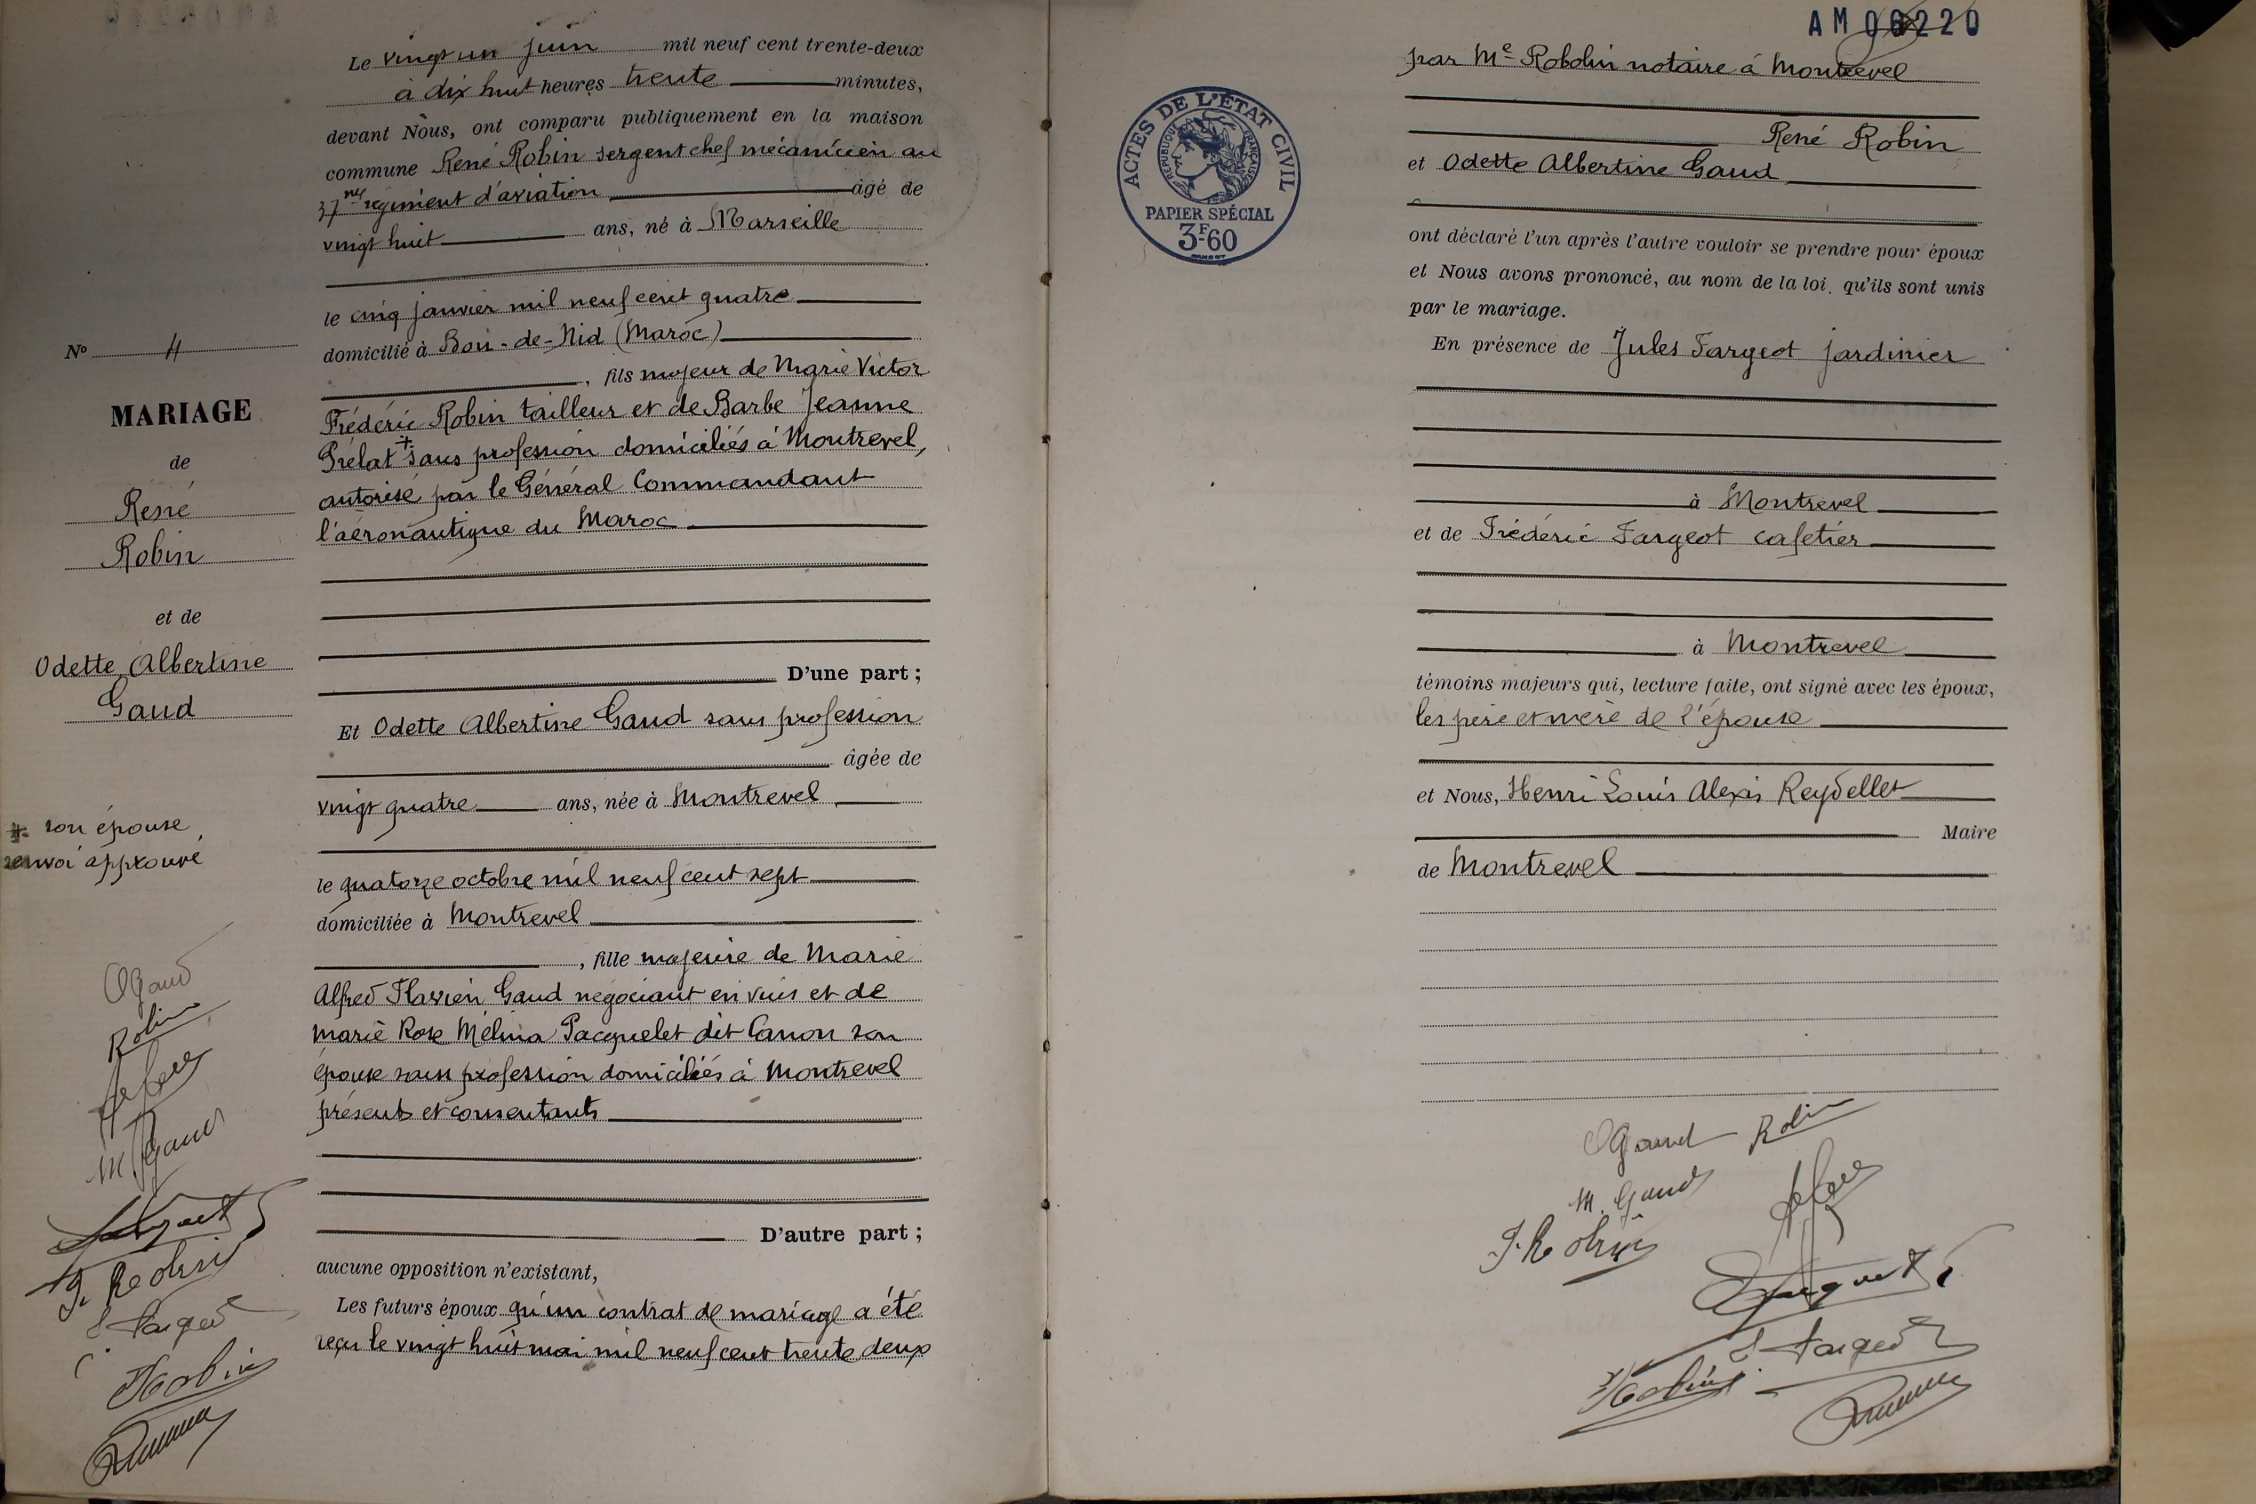 Le vingt un juin mil neuf cent trente-deux
à dix huit heures trente minutes,
devant Nous, ont comparu publiquement en la maison
commune René Robin sergent chef mécanicien au
37me régiment d'aviation âgé de
vingt huit ans, né à Marseille
le cinq janvier mil neuf cent quatre
domicilié à Bou-de-Nid (Maroc)
, fils majeur de Marie Victor
Frédéric Robin tailleur et de Barbe Jeanne
Prélat + sans profession domiciliés à Montrevel,
autorisé par le Général Commandant
l'aéronautique du Maroc
D'une part ;
Et Odette Albertine Gaud sans profession
âgée de
vingt quatre ans, née à Montrevel
le quatorze octobre mil neuf cent sept
domiciliée à Montrevel
, fille majeure de Marie
Alfred Flavien Gaud négociant en vins et de
Marie Rose Mélina Pacquelet dit Canon son
épouse sans profession domiciliés à Montrevel
présents et consentants
D'autre part ;
aucune opposition n'existant,
Les futurs époux qu'un contrat de mariage a été
reçu le vingt huit mai mil neuf cent trente deux
No 4
MARIAGE
de
René
Robin
et de
Odette Albertine
Gaud
+ son épouse
renvoi approuvé
OGaud
Robin
M. Gaud
AM 06220
par Me Robolin notaire à Montrevel
René Robin
et Odette Albertine Gaud
ont déclaré l'un après l'autre vouloir se prendre pour époux
et Nous avons prononcé, au nom de la loi, qu'ils sont unis
par le mariage.
En présence de Jules Fargeot jardinier
à Montrevel
et de Frédéric Fargeot cafetier
à Montrevel
témoins majeurs qui, lecture faite, ont signé avec les époux,
les père et mère de l'épouse
et Nous, Henri Louis Alexis Reydellet
Maire
de Montrevel
ACTES DE L'ÉTAT CIVIL
RÉPUBLIQUE FRANÇAISE
PAPIER SPÉCIAL
3F60
OGaud Robin
M. Gaud